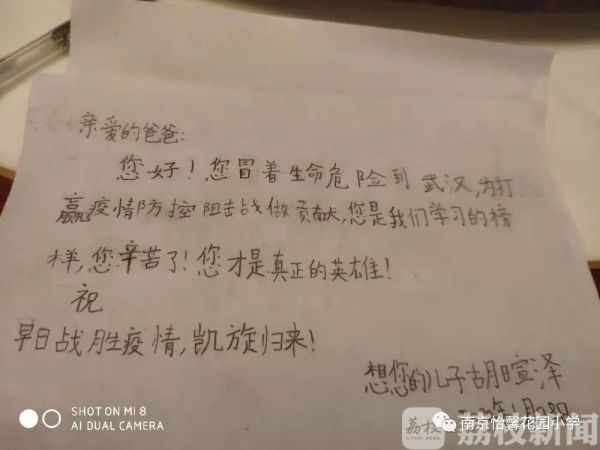 亲爱的爸爸:
您好!您冒着生命危险到武汉,为打
赢疫情防控阻击战做贡献,您是我们学习的榜
样,您辛苦了!您才是真正的英雄!
祝
早日战胜疫情,凯旋归来!
想您的儿子胡暄泽
SHOT ON MI 8
AI DUAL CAMERA
南京怡馨花园小学
荔枝
荔枝新闻